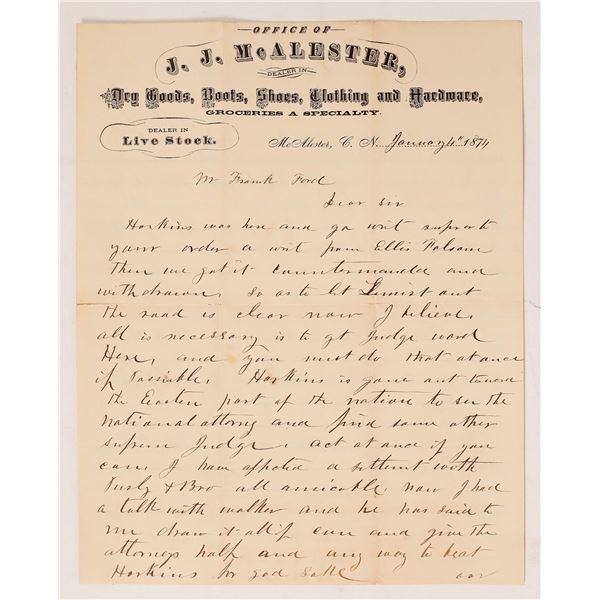 OFFICE OF
J. J. McALESTER,
DEALER IN
Dry Goods, Boots, Shoes, Clothing and Hardware,
GROCERIES A SPECIALTY.
DEALER IN
Live Stock.
McAlester, C. N. January 4th 1874
Mr Frank Ford
Dear Sir
Harkins was here and writ
your order a writ from Ellis Folsom
Then we got it countermanded and
withdrawn. so as to let out
the road is clear now I believe.
all is necessary is to gt Judge word
Here, and you must do that at once
if Possiable. Harkins is gone out toward
the Eastern part of the nation to see the
national attorny and find some other
supreme Judge. act at once if you
can. I have affected a settlement with
& Bro all amicable. now I had
a talk with walker and he has said to
me draw it all if can and give the
attorneys half and any way to beat
Harkins for god Sake